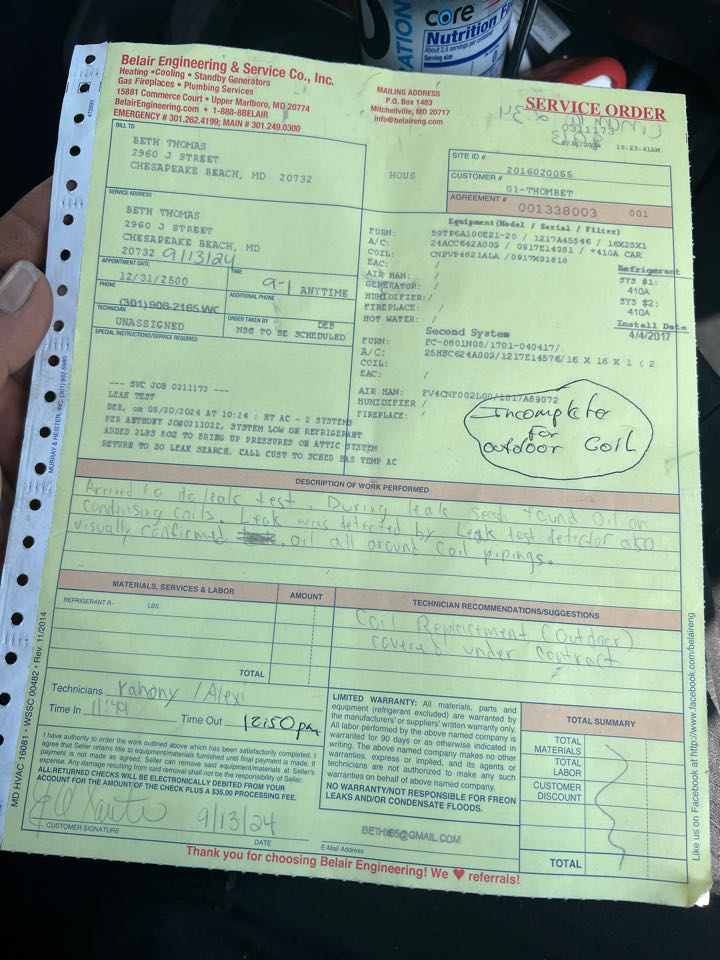 core
Nutrition
About 2.5 servings per container
Serving size
Belair Engineering & Service Co., Inc.
Heating • Cooling • Standby Generators
Gas Fireplaces • Plumbing Services
15881 Commerce Court • Upper Marlboro, MD 20774
BelairEngineering.com • 1-888-8BELAIR
EMERGENCY # 301.262.4199; MAIN # 301.249.0300
MAILING ADDRESS
P.O. Box 1483
Mitchellville, MD 20717
info@belaireng.com
SERVICE ORDER
0311173
10:25:41AM
BILL TO
BETH THOMAS
2960 J STREET
CHESAPEAKE BEACH, MD 20732
HOUS
SITE ID #
2016020055
CUSTOMER #
01-THOMBET
AGREEMENT #
001338003 001
SERVICE ADDRESS
BETH THOMAS
2960 J STREET
CHESAPEAKE BEACH, MD
20732 9/13/24
APPOINTMENT DATE
12/31/2500
TIME
9-1 ANYTIME
PHONE
(301)908-2165 WC
ADDITIONAL PHONE
TECHNICIAN
UNASSIGNED
ORDER TAKEN BY
DEB
NSG TO BE SCHEDULED
SPECIAL INSTRUCTIONS/SERVICE REQUIRED
Equipment(Model / Serial / Filter)
FURN: 59TP6A100E21-20 / 1217A45546 / 16X25X1
A/C: 24ACC642A003 / 0917E14361 / *410A CAR
COIL: CNPVP4821ALA /0917X31818
EAC: /
AIR HAN: /
GENERATOR: /
HUMIDIFIER: /
FIREPLACE: /
HOT WATER: /
Refrigerant
SYS #1:
410A
SYS #2:
410A
Install Date
4/4/2017
Second System
FURN: FC-0801N05/1701-040417/
A/C: 25HBC624A003/1217E14576/16 X 16 X 1 ( 2
COIL: /
EAC: /
AIR HAN: FV4CNF002L00/1017A89072
HUMIDIFIER /
FIREPLACE: /
--- SVC JOB 0311173 ---
LEAK TEST
DEB, on 08/30/2024 AT 10:24 : HT AC - 2 SYSTEMS
PER ANTHONY JOB0311022, SYSTEM LOW ON REFRIGERANT
ADDED 2LBS 8OZ TO BRING UP PRESSURES ON ATTIC SYSTEM
RETURN TO DO LEAK SEARCH. CALL CUST TO SCHED HAS TEMP AC
Incomplete
for
outdoor Coil
DESCRIPTION OF WORK PERFORMED
Arrived to do leak test. During leak search found Oil on
condensing coils. Leak was detected by Leak test detector also
visually confirmed oil all around coil pipings.
MATERIALS, SERVICES & LABOR
AMOUNT
REFRIGERANT R- LBS.
TOTAL
TECHNICIAN RECOMMENDATIONS/SUGGESTIONS
Coil Replacement (Outdoor)
covered under contract
Technicians Yahony / Alexi
Time In 11:49
Time Out 12:50 pm
I have authority to order the work outlined above which has been satisfactorily completed. I
agree that Seller retains title to equipment/materials furnished until final payment is made. If
payment is not made as agreed, Seller can remove said equipment/materials at Seller's
expense. Any damage resulting from said removal shall not be the responsibility of Seller.
ALL RETURNED CHECKS WILL BE ELECTRONICALLY DEBITED FROM YOUR
ACCOUNT FOR THE AMOUNT OF THE CHECK PLUS A $35.00 PROCESSING FEE.
9/13/24
CUSTOMER SIGNATURE
DATE
LIMITED WARRANTY: All materials, parts and
equipment (refrigerant excluded) are warranted by
the manufacturers' or suppliers' written warranty only.
All labor performed by the above named company is
warranted for 90 days or as otherwise indicated in
writing. The above named company makes no other
warranties, express or implied, and its agents or
technicians are not authorized to make any such
warranties on behalf of above named company.
NO WARRANTY/NOT RESPONSIBLE FOR FREON
LEAKS AND/OR CONDENSATE FLOODS.
E-Mail Address
TOTAL SUMMARY
TOTAL MATERIALS
TOTAL LABOR
CUSTOMER DISCOUNT
TOTAL
Thank you for choosing Belair Engineering! We ♥ referrals!
MD HVAC 16081 • WSSC 00482 • Rev. 11/2014
MURRAY & HEISTER, INC. (301) 937-5980
472893
Like us on Facebook at http://www.facebook.com/belaireng